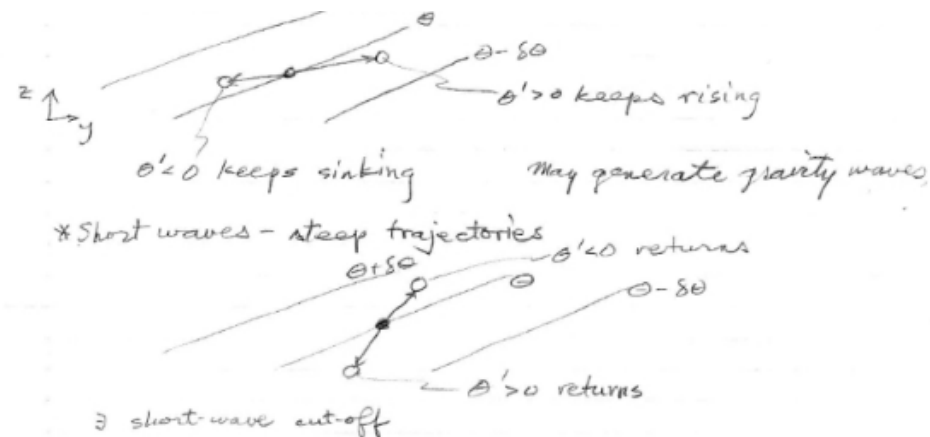 θ
θ-δθ
z
y
θ'>0 keeps rising
θ'<0 keeps sinking
may generate gravity waves,
*Short waves - steep trajectories
θ'<0 returns
θ+δθ
θ
θ-δθ
θ'>0 returns
∃ short-wave cut-off